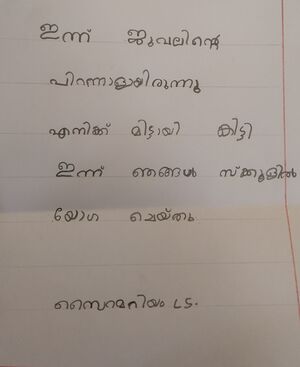 ഇന്ന് ജുവലിന്റെ
പിറന്നാളായിരുന്നു
എനിക്ക് മിട്ടായി കിട്ടി
ഇന്ന് ഞങ്ങൾ സ്ക്കൂളിൽ
യോഗ ചെയ്തു
സൈറമറിയം LS.